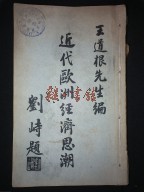 王道根先生编
近代歐洲經濟思潮
劉峙題